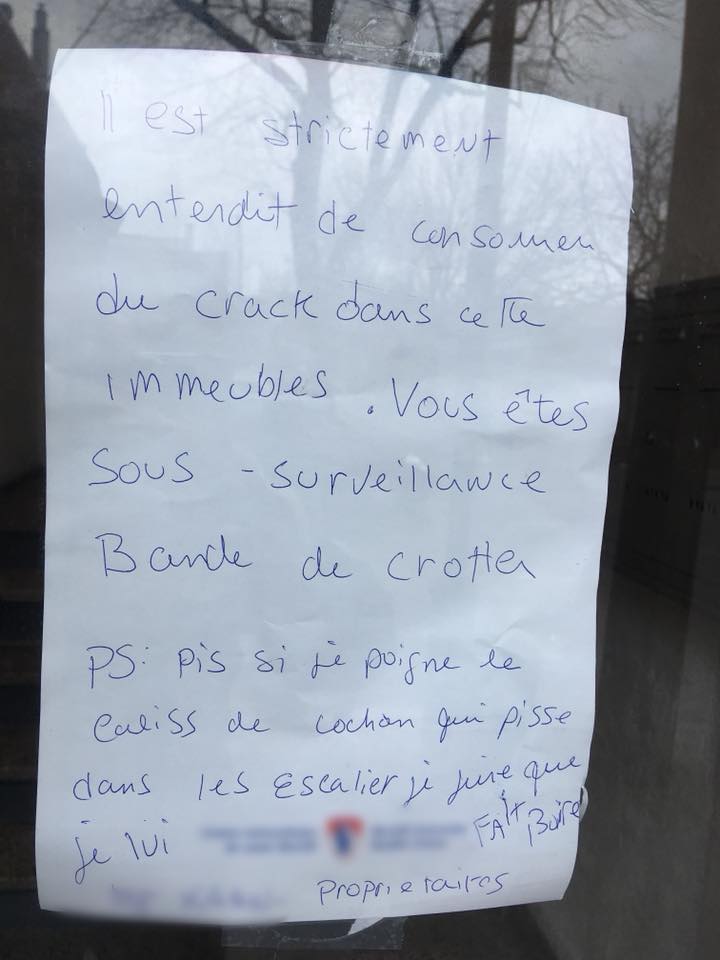 Il est strictement
enterdit de consommer
du crack dans cette
immeubles. Vous êtes
sous-surveillance
Bande de crotter
PS: pis si je poigne le
caliss de cochon qui pisse
dans les escalier je jure que
je lui FAIt Boire
proprietaires